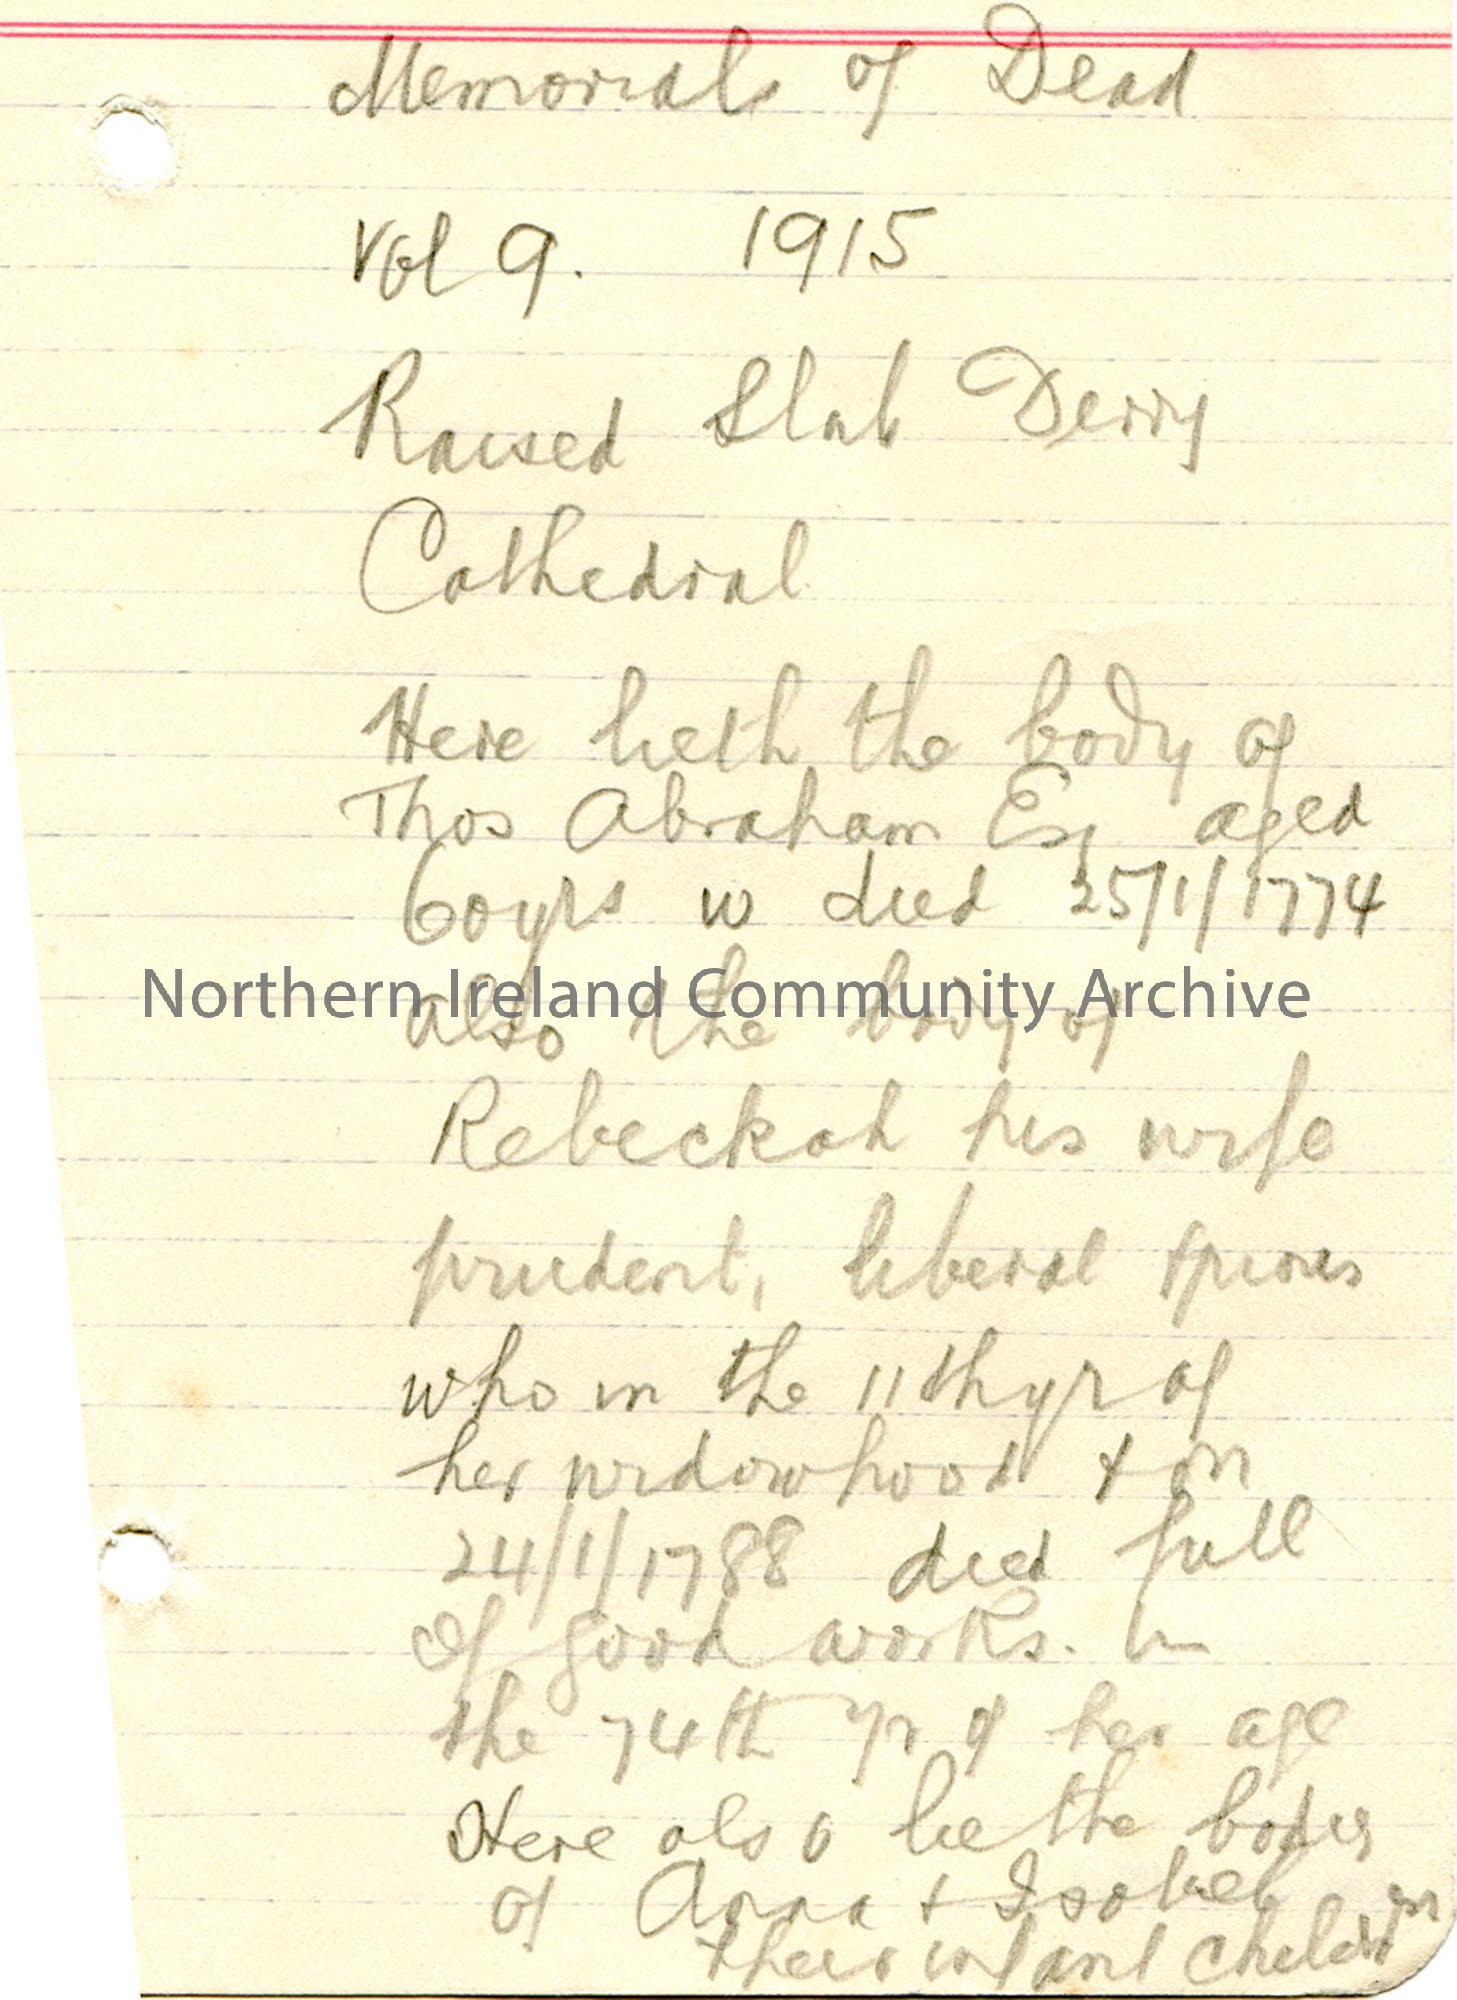 Memorials of Dead
Vol 9. 1915
Raised Slab Derry
Cathedral
Here lieth the body of
Thos Abraham Esq aged
60yrs w died 25/1/1774
Northern Ireland Community Archive
also the body of
Rebeckah his wife
prudent, liberal + pious
who in the 11th yr of
her widowhood + on
24/1/1788 died full
of good works. In
the 74th yr of her age
Here also lie the bodies
of Anna + Isobel
their infant children